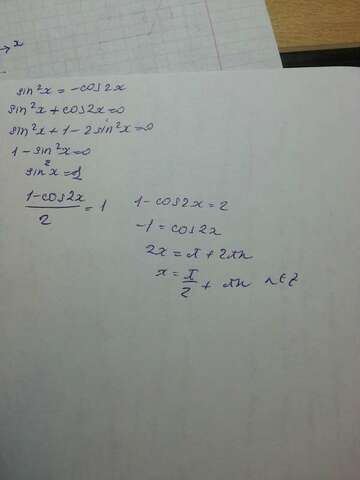 x
sin²x = -cos2x
sin²x + cos2x = 0
sin²x + 1 - 2sin²x = 0
1 - sin²x = 0
sin²x = 1
(1-cos2x)/2 = 1
1 - cos2x = 2
-1 = cos2x
2x = π + 2πn
x = π/2 + πn n∈Z